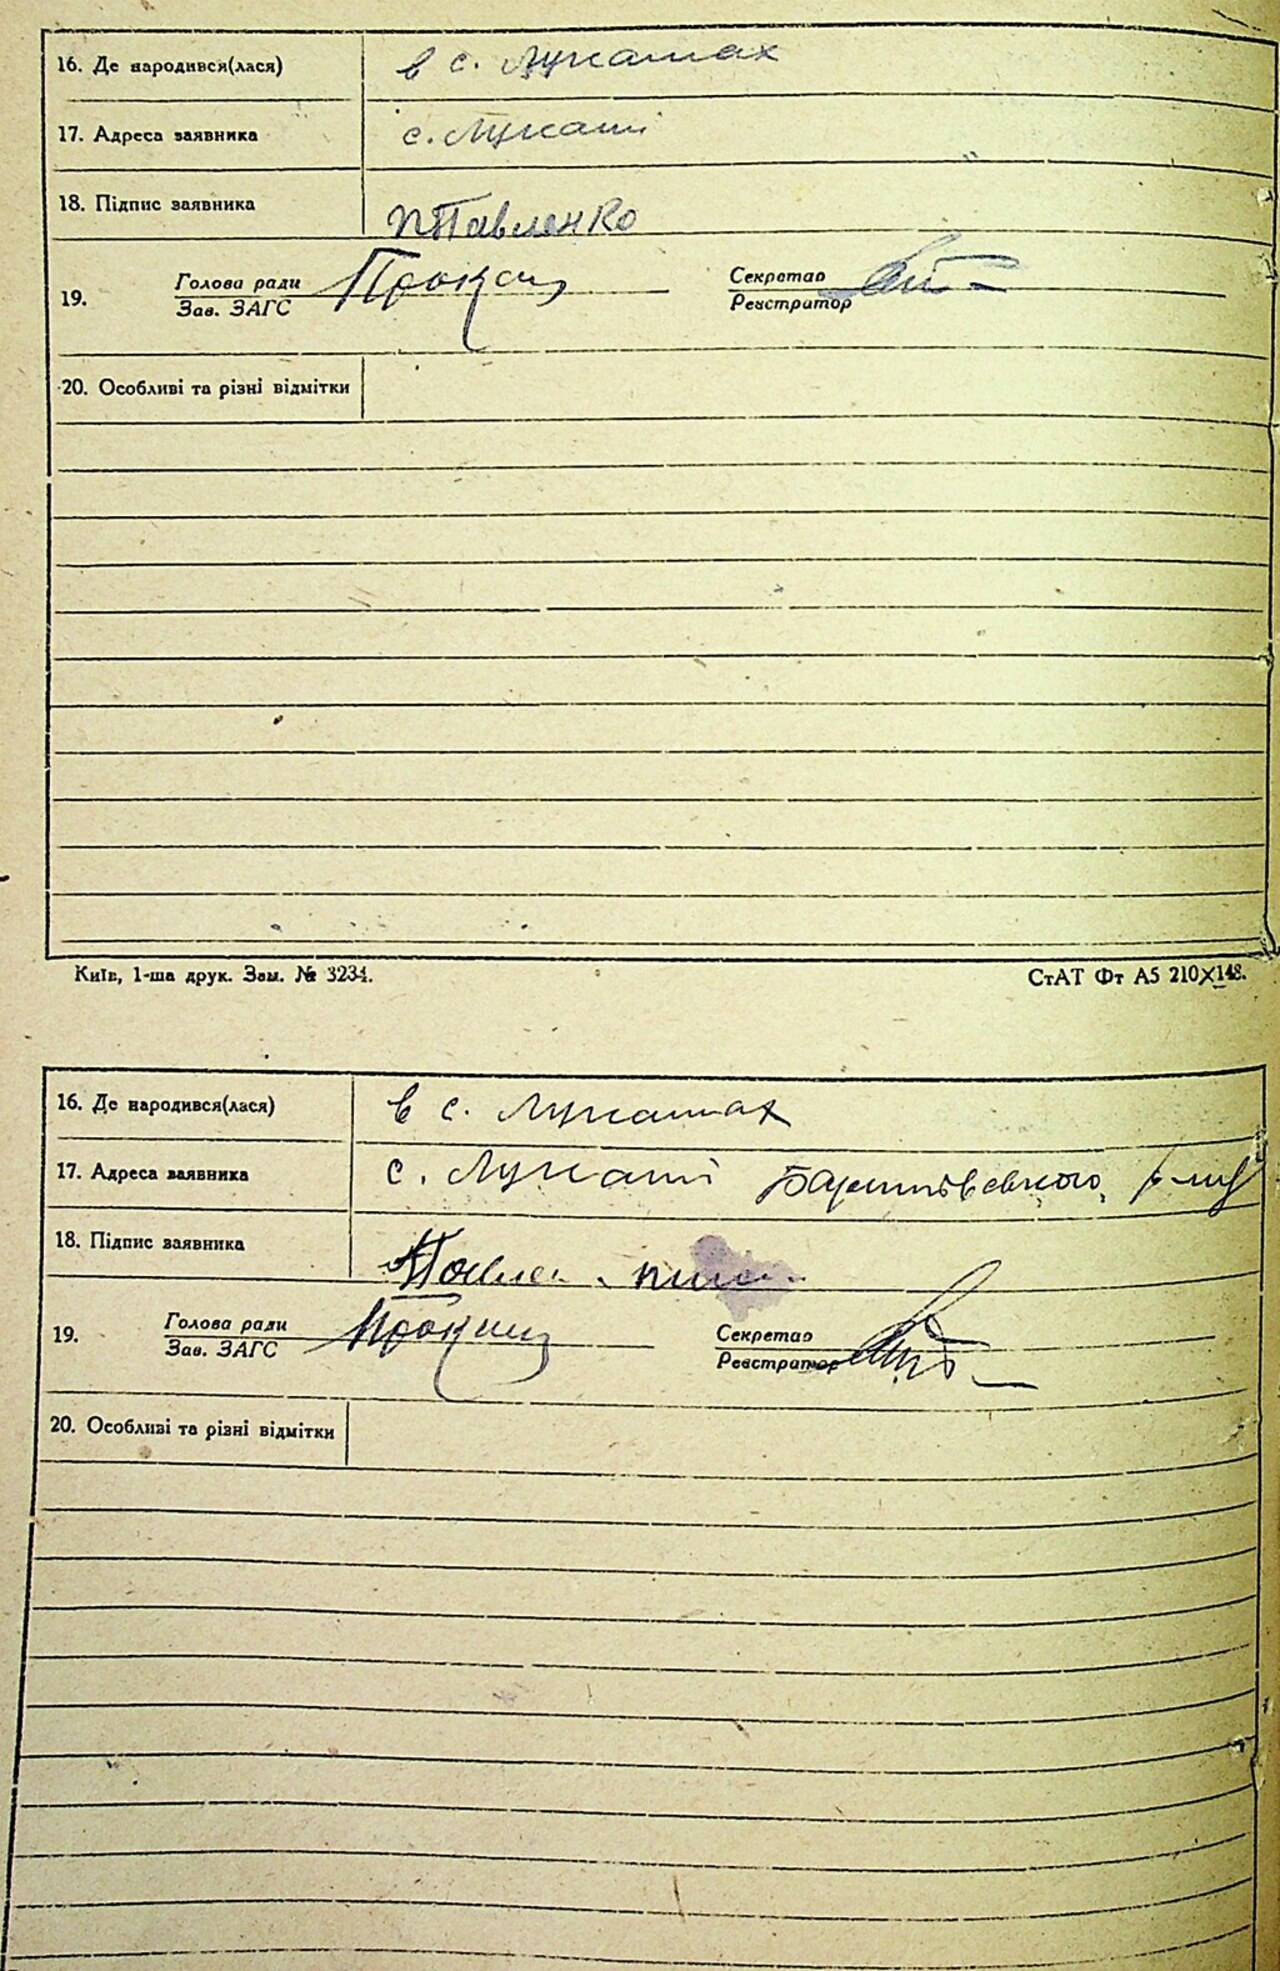 16. Де народився(лася) в с. Лукашах
17. Адреса заявника с. Лукаші
18. Підпис заявника Павленко
19. Голова ради Секретар
Зав. ЗАГС Реєстратор
20. Особливі та різні відмітки
Київ, 1-ша друк. Зам. № 3234. СтАТ Фт А5 210Х148.
16. Де народився(лася) в с. Лукашах
17. Адреса заявника с. Лукаші Баришівського р-ну
18. Підпис заявника
19. Голова ради Секретар
Зав. ЗАГС Реєстратор
20. Особливі та різні відмітки